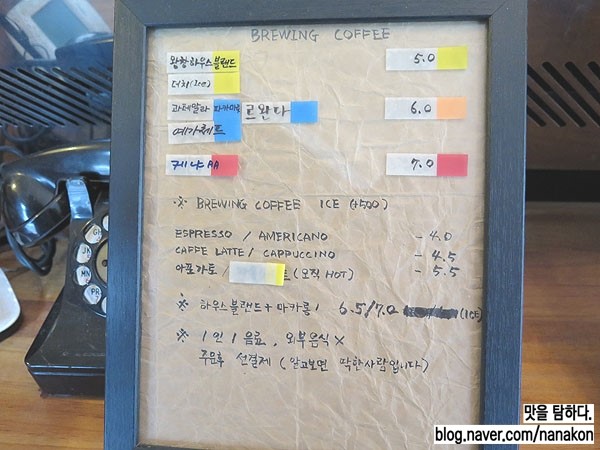 BREWING COFFEE
왕창 하우스블랜드 5.0
더치(Ice)
과테말라 파카마라 르완다 6.0
예가체프
케냐AA 7.0
※ BREWING COFFEE ICE (+500)
ESPRESSO / AMERICANO - 4.0
CAFFE LATTE / CAPPUCCINO - 4.5
아포가토 / (오직 HOT) - 5.5
※ 하우스블랜드 + 마카롱 / 6.5/7.0 (ICE)
※ 1인 1음료, 외부음식 X
주문후 선결제 (알고보면 딱한사람입니다)
맛을 탐하다.
blog.naver.com/nanakon